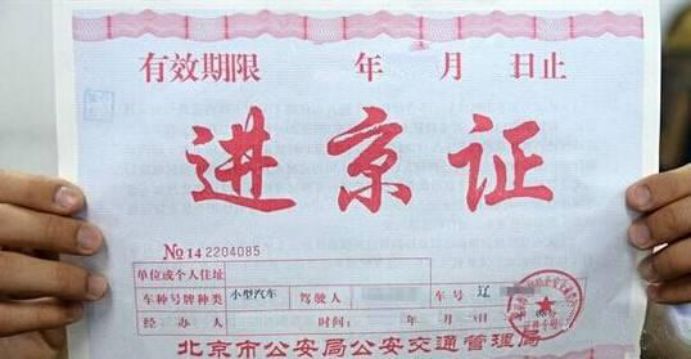 有效期限 年 月 日止
进京证
№ 14 2204085
单位或个人住址
车种号牌种类 小型汽车 驾驶人 车号 辽
经办人 时间: 年 月 日
北京市公安局公安交通管理局